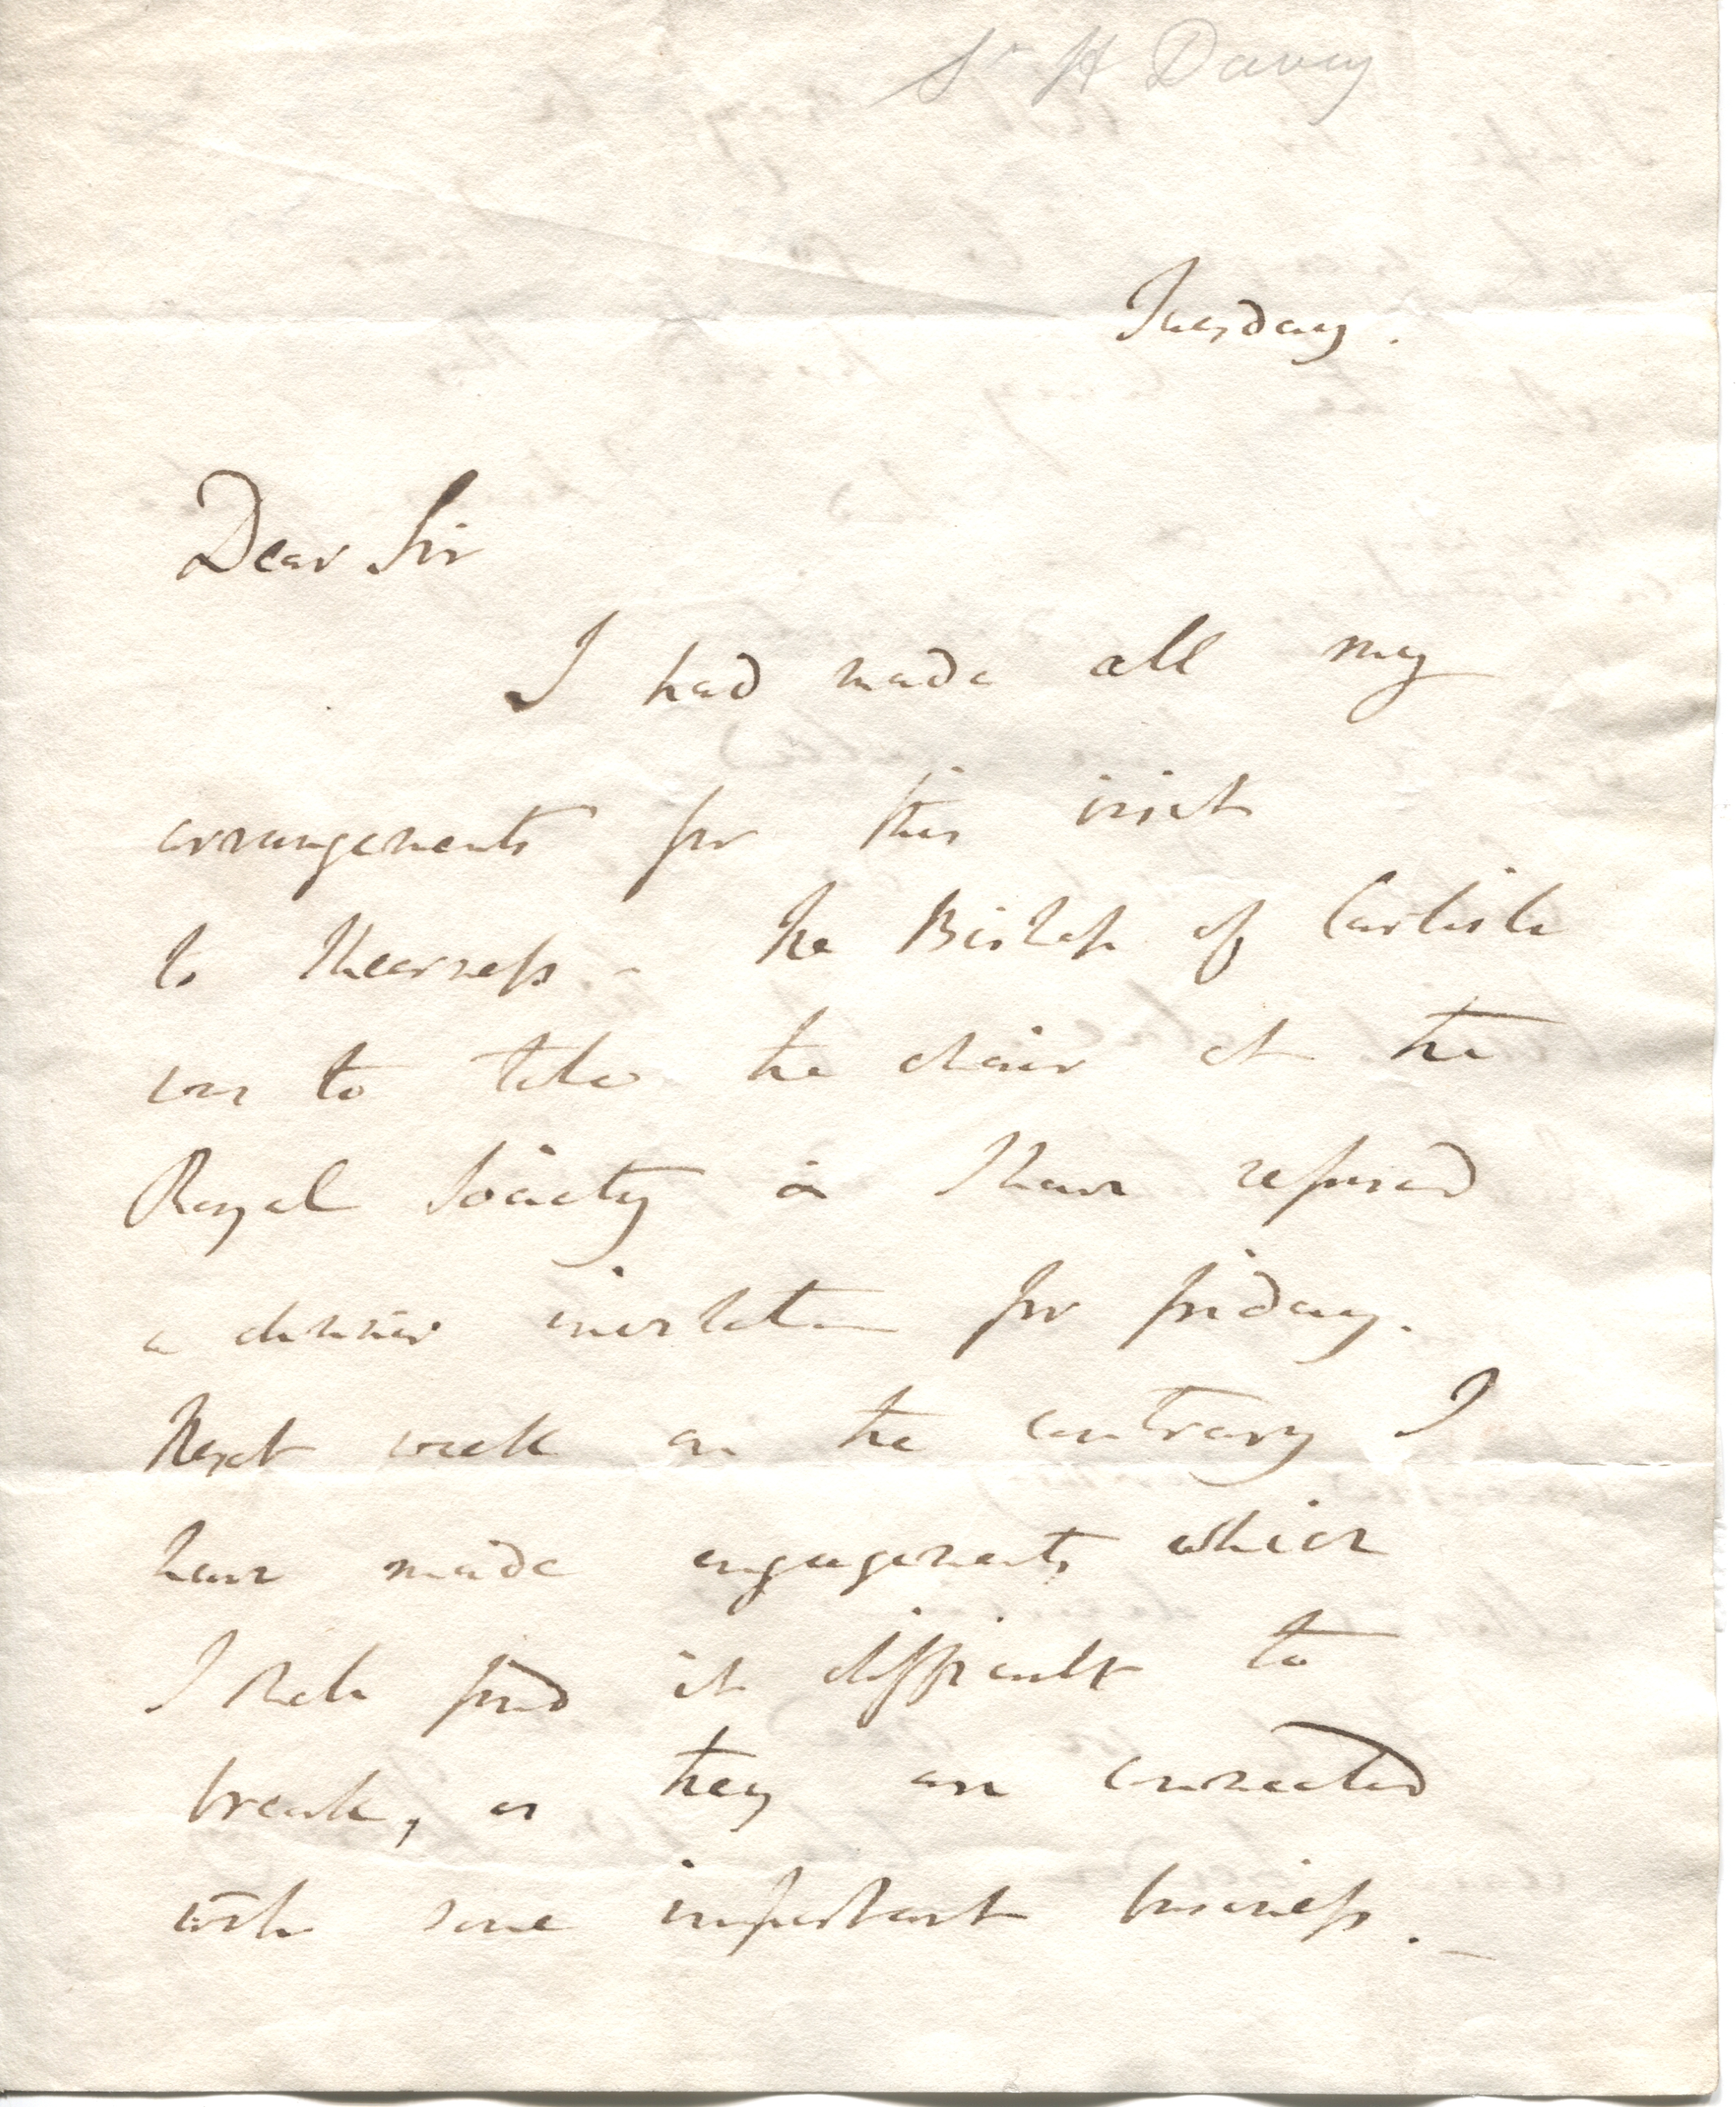 Sr H Davy
Tuesday.
Dear Sir
I had made all my
arrangements for this visit
to Sheerness - The Bishop of Carlisle
was to take the chair at the
Royal Society & I have refused
a dinner invitation for friday.
Next week on the contrary I
have made engagements which
I shall find it difficult to
break, as they are connected
with some important business. _